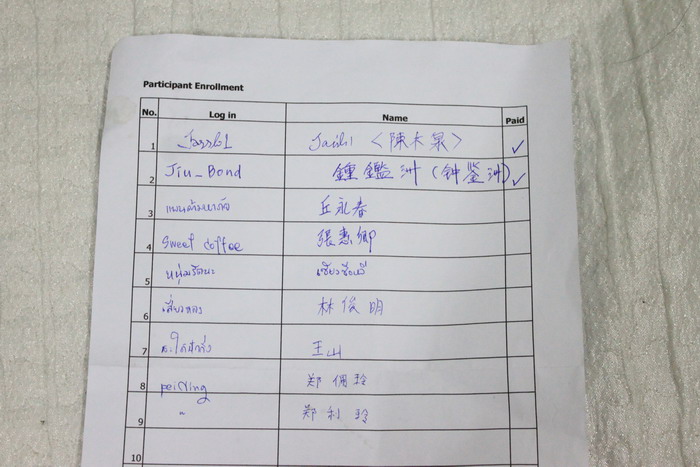 Participant Enrollment
No. Log in Name Paid
1 <陳木泉> ✓
2 Jiu_Bond 鍾鑑洲 (钟鉴洲) ✓
3 丘永春
4 Sweet coffee 張惠卿
5 หนุ่มรัตนะ
6 เสี่ยวหลง 林俊明
7 王山
8 peiNing 郑佣玲
9 " 郑利玲
10